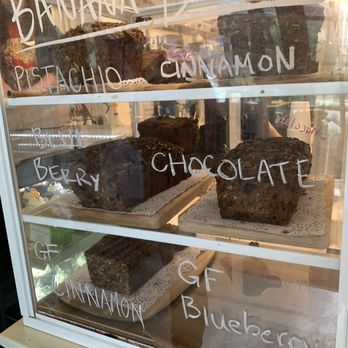 BANANA
PISTACHIO
CINNAMON
BERRY
CHOCOLATE
GF
CINNAMON
GF
Blueberry